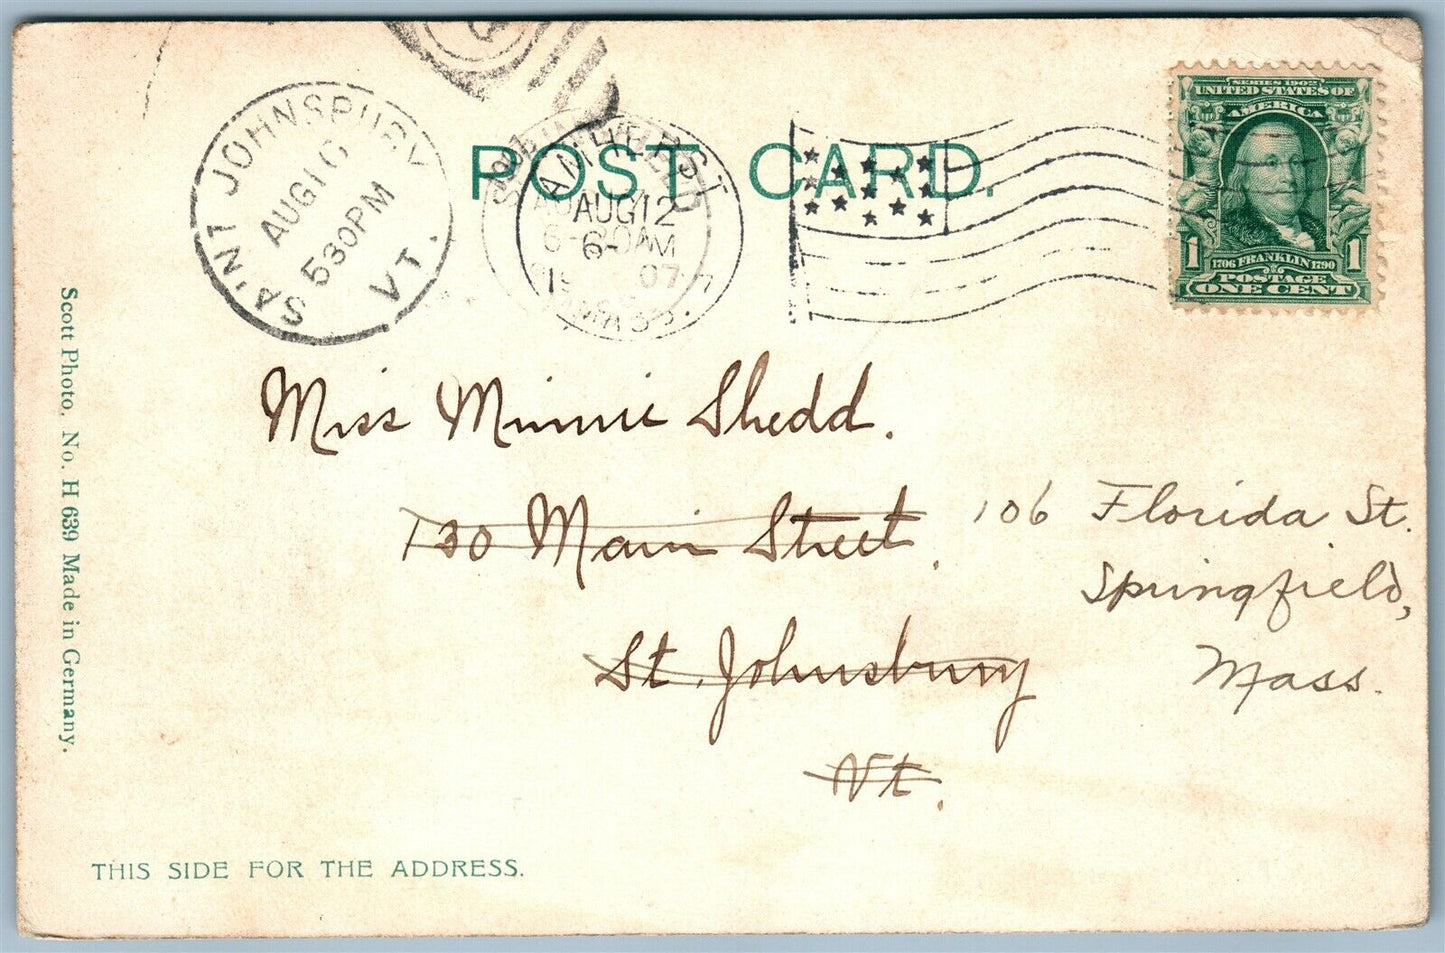 POST CARD.
SAINT JOHNSBURY
AUG 10
530PM
VT.
AMHERST
AUG 12
MASS.
SERIES 1902
UNITED STATES OF
AMERICA
1 1
1706 FRANKLIN 1790
POSTAGE
ONE CENT
Miss Minnie Shedd.
130 Main Street.
St. Johnsbury
Vt.
106 Florida St.
Springfield,
Mass.
Scott Photo. No. H 639 Made in Germany.
THIS SIDE FOR THE ADDRESS.